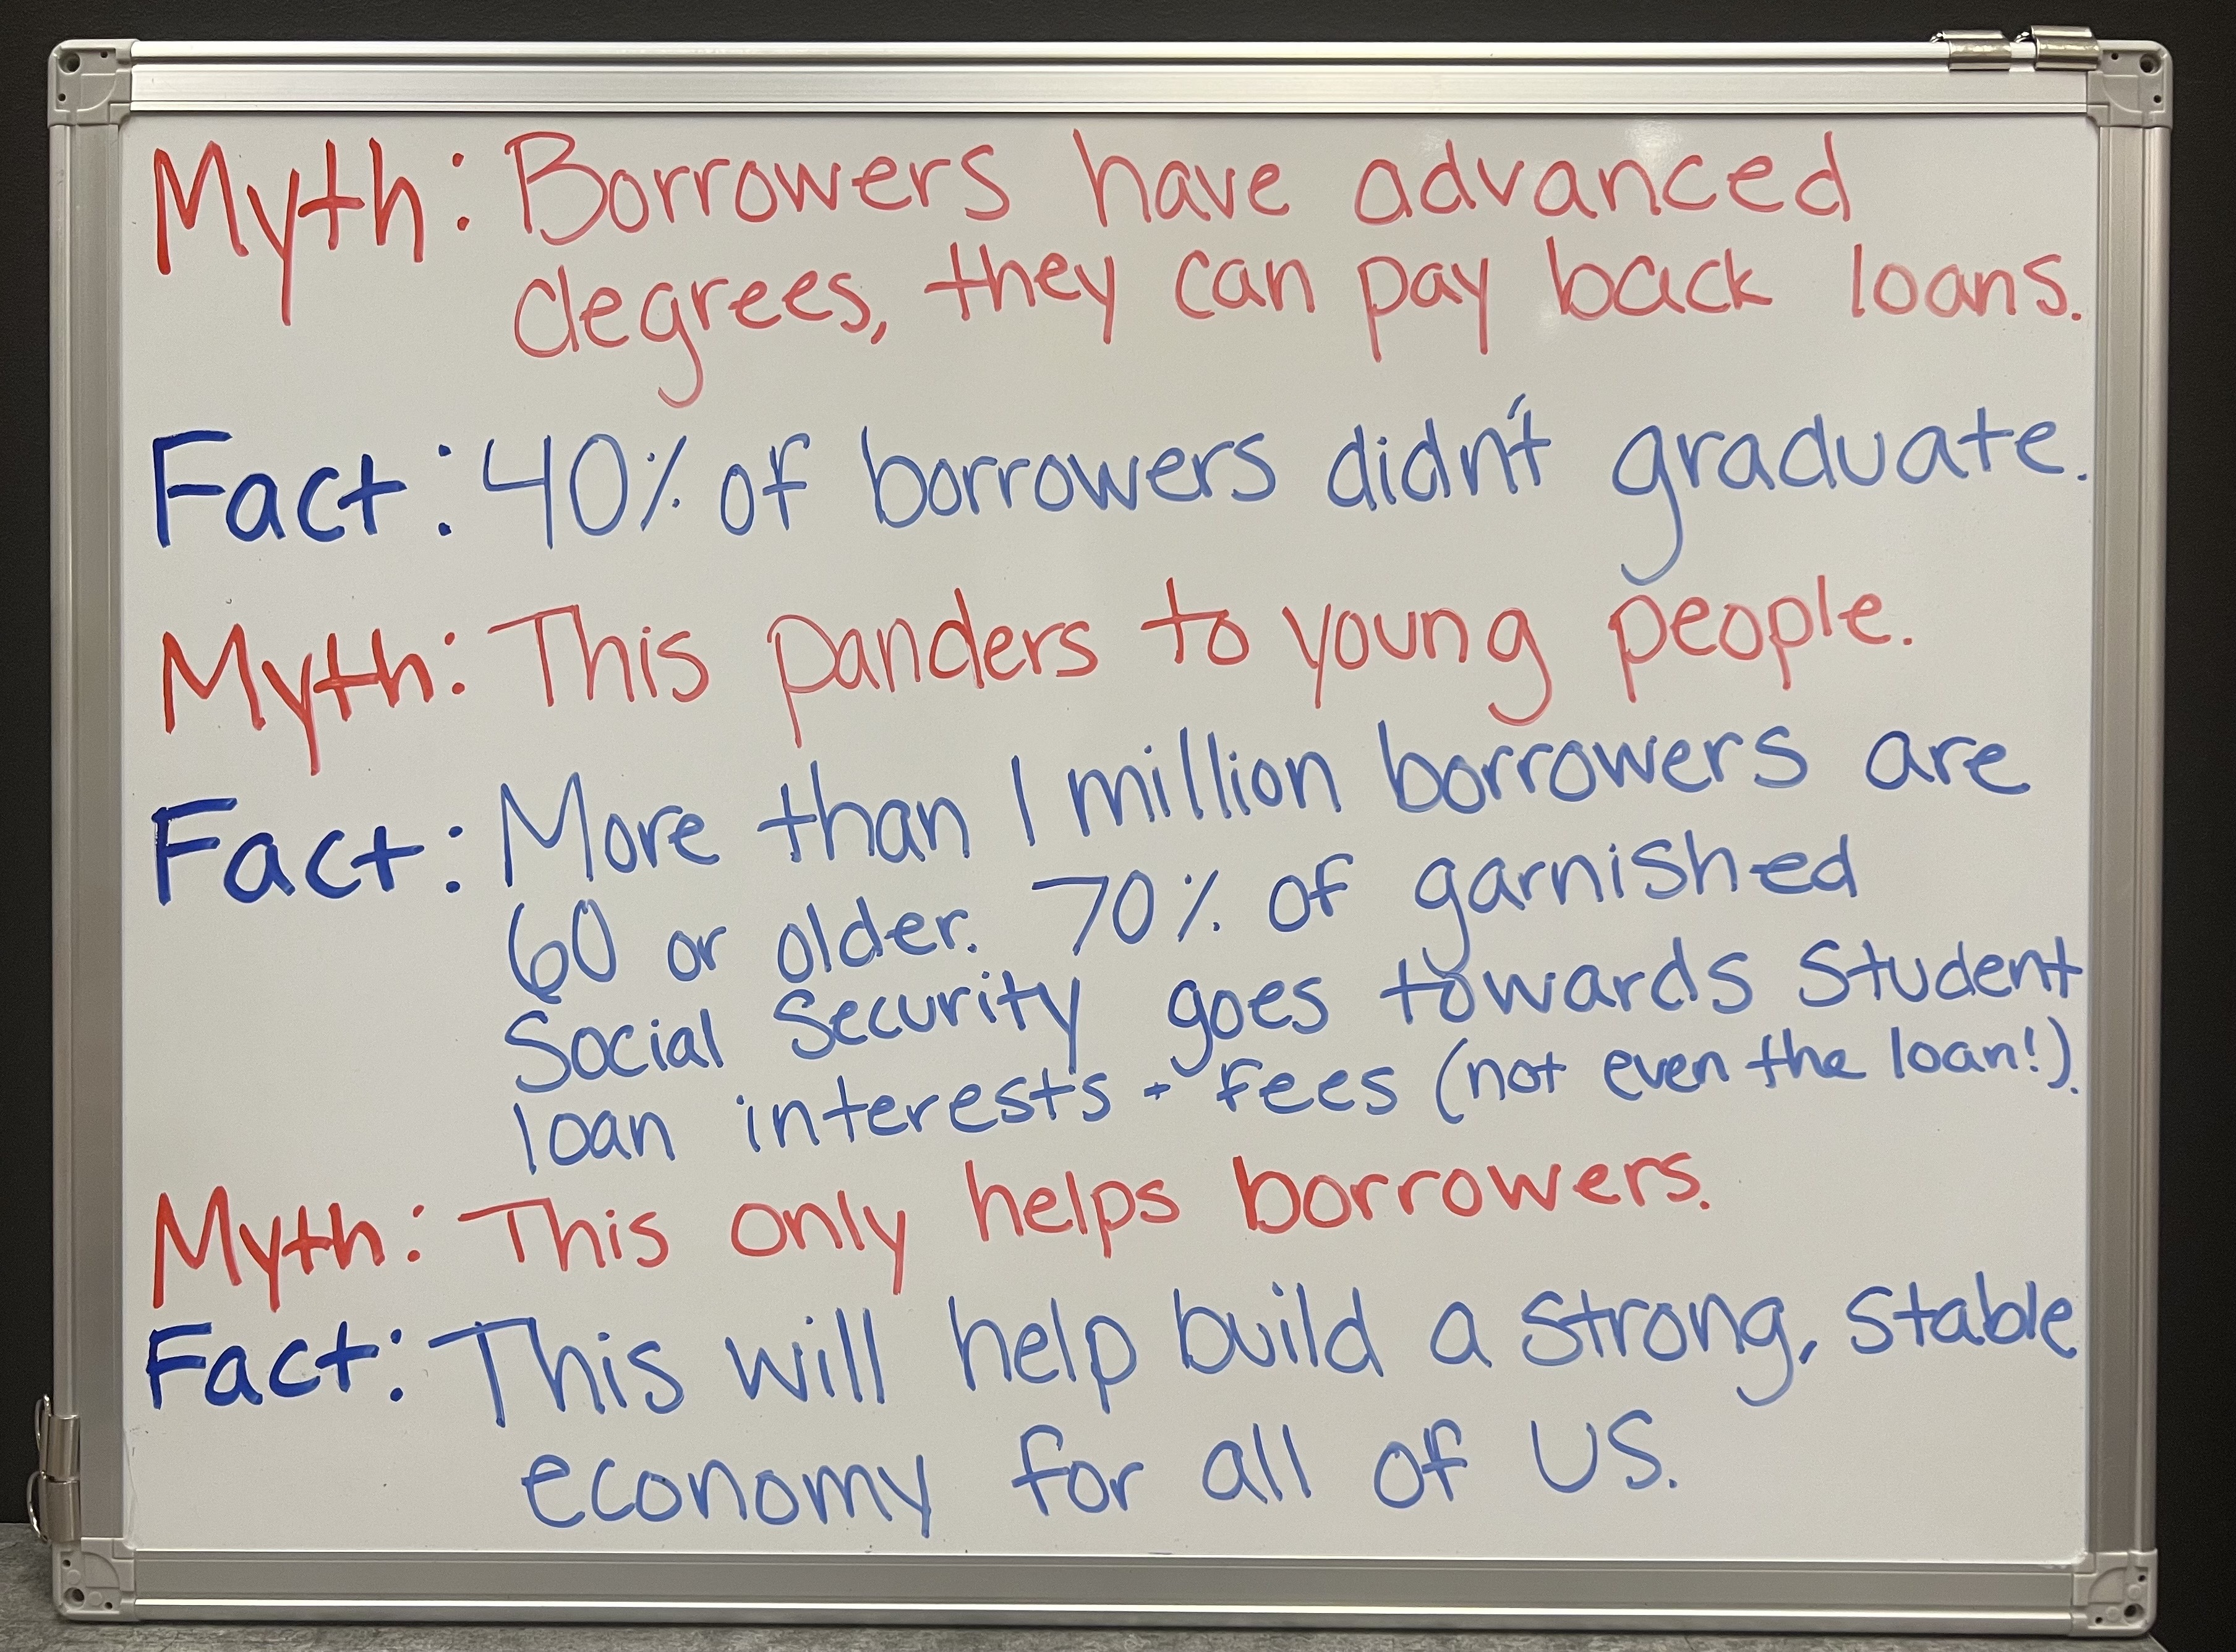 Myth: Borrowers have advanced
degrees, they can pay back loans.
Fact: 40% of borrowers didn't graduate.
Myth: This panders to young people.
Fact: More than 1 million borrowers are
60 or older. 70% of garnished
Social Security goes towards student
loan interests + fees (not even the loan!).
Myth: This only helps borrowers.
Fact: This will help build a strong, stable
economy for all of US.